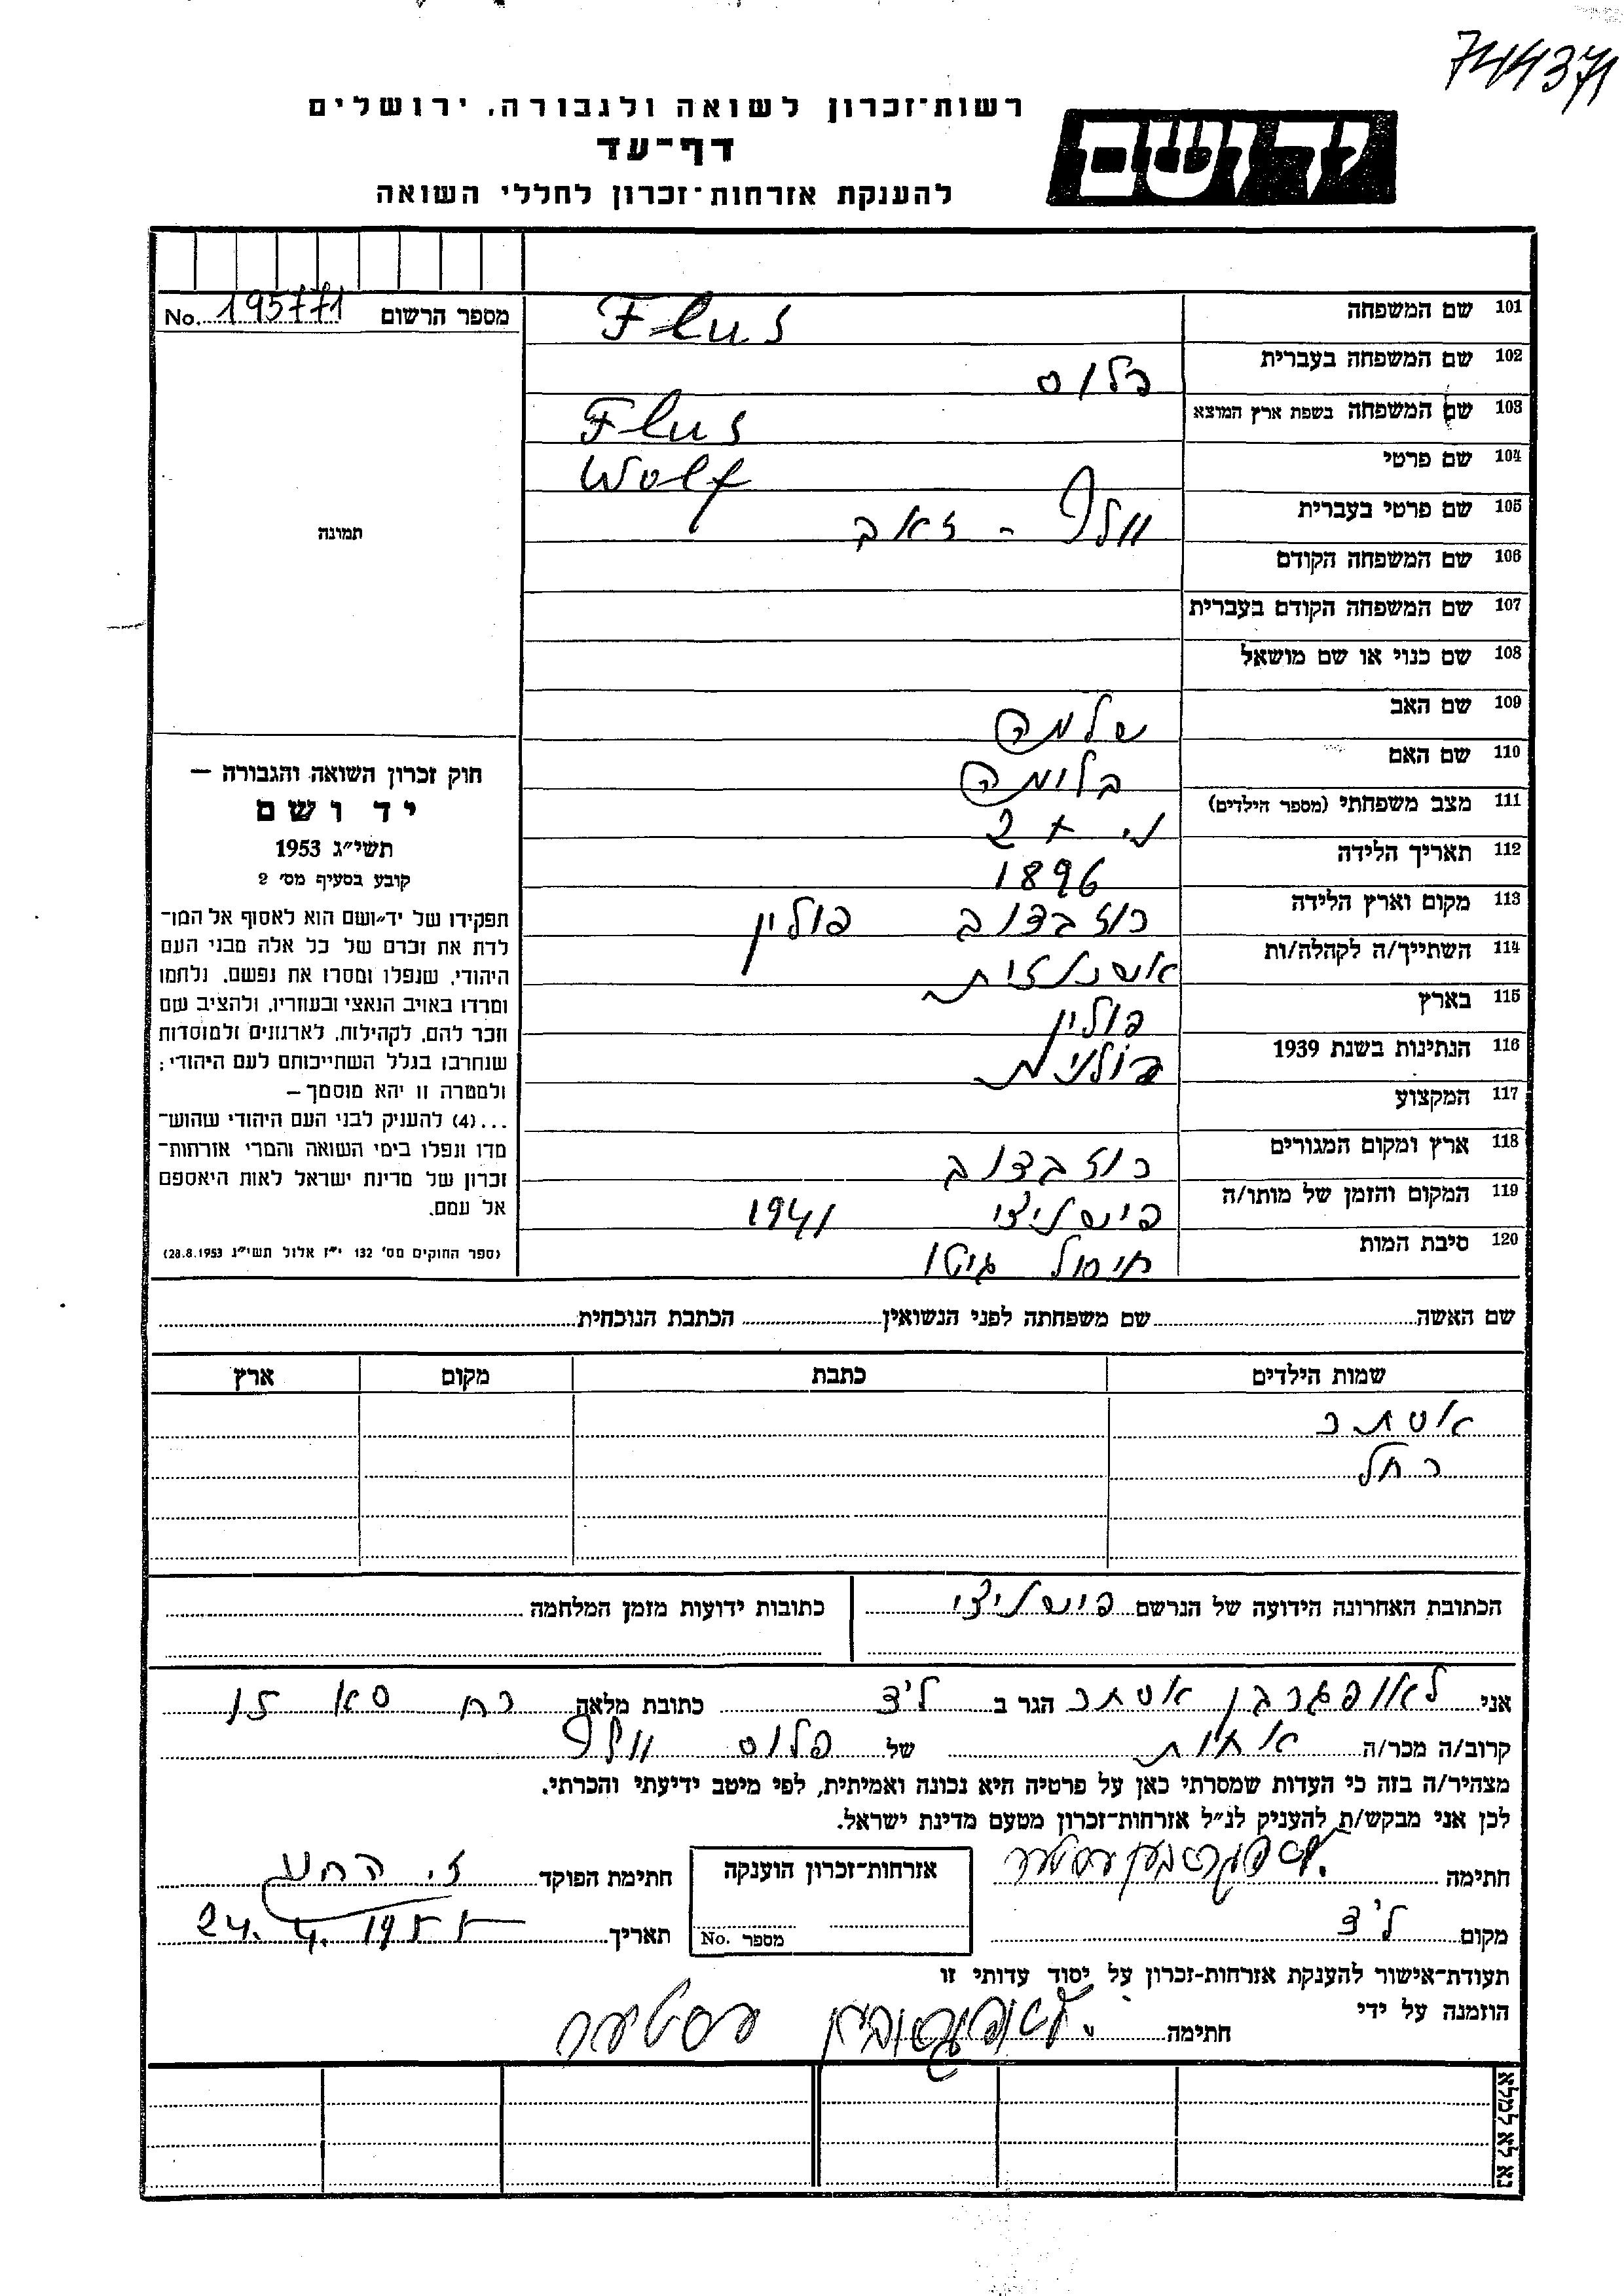 744371
רשות־זכרון לשואה ולגבורה, ירושלים
דף־עד
להענקת אזרחות־זכרון לחללי השואה
יד ושם
מספר הרשום No. 195771
101 שם המשפחה Flus
102 שם המשפחה בעברית פלוס
103 שם המשפחה בשפת ארץ המוצא Flus
104 שם פרטי Wolf
105 שם פרטי בעברית וולף - זאב
106 שם המשפחה הקודם
107 שם המשפחה הקודם בעברית
108 שם כנוי או שם מושאל
109 שם האב שלמה
110 שם האם בלומה
111 מצב משפחתי (מספר הילדים) נ + 2
112 תאריך הלידה 1896
113 מקום וארץ הלידה רוזבדוב פולין
114 השתייך/ה לקהלה/ות אשכנזית
115 בארץ פולין
116 הנתינות בשנת 1939 פולנית
117 המקצוע
118 ארץ ומקום המגורים רוזבדוב
119 המקום והזמן של מותו/ה 1941
120 סיבת המות חיסול גיטו
תמונה
חוק זכרון השואה והגבורה —
יד ושם
תשי״ג 1953
קובע בסעיף מס׳ 2
תפקידו של יד־ושם הוא לאסוף אל המו־
לדת את זכרם של כל אלה מבני העם
היהודי, שנפלו ומסרו את נפשם, נלחמו
ומרדו באויב הנאצי ובעוזריו, ולהציב שם
וזכר להם, לקהילות, לארגונים ולמוסדות
שנחרבו בגלל השתייכותם לעם היהודי;
ולמטרה זו יהא מוסמך —
...(4) להעניק לבני העם היהודי שהוש־
מדו ונפלו בימי השואה והמרי אזרחות־
זכרון של מדינת ישראל לאות היאספם
אל עמם.
(ספר החוקים מס׳ 132 י״ז אלול תשי״ג 28.8.1953)
שם האשה שם משפחתה לפני הנשואין הכתבת הנוכחית
שמות הילדים כתבת מקום ארץ
אסתר
רחל
הכתובת האחרונה הידועה של הנרשם
כתובות ידועות מזמן המלחמה
אני אסתר הגר ב כתובת מלאה 15
קרוב/ה מכר/ה אחות של פלוס וולף
מצהיר/ה בזה כי העדות שמסרתי כאן על פרטיה היא נכונה ואמיתית, לפי מיטב ידיעתי והכרתי.
לכן אני מבקש/ת להעניק לנ״ל אזרחות־זכרון מטעם מדינת ישראל.
חתימה
אזרחות־זכרון הוענקה
מספר No.
חתימת הפוקד
מקום
תאריך 24.4.1955
תעודת־אישור להענקת אזרחות-זכרון על יסוד עדותי זו
הוזמנה על ידי
חתימה עסטער
נא לא למלא